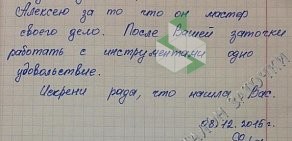 Алексею за то что он мастер
своего дела. После Вашей заточки
работать с инструментами одно
удовольствие.
Искрени рада, что нашла Вас.
08.12.2015г.